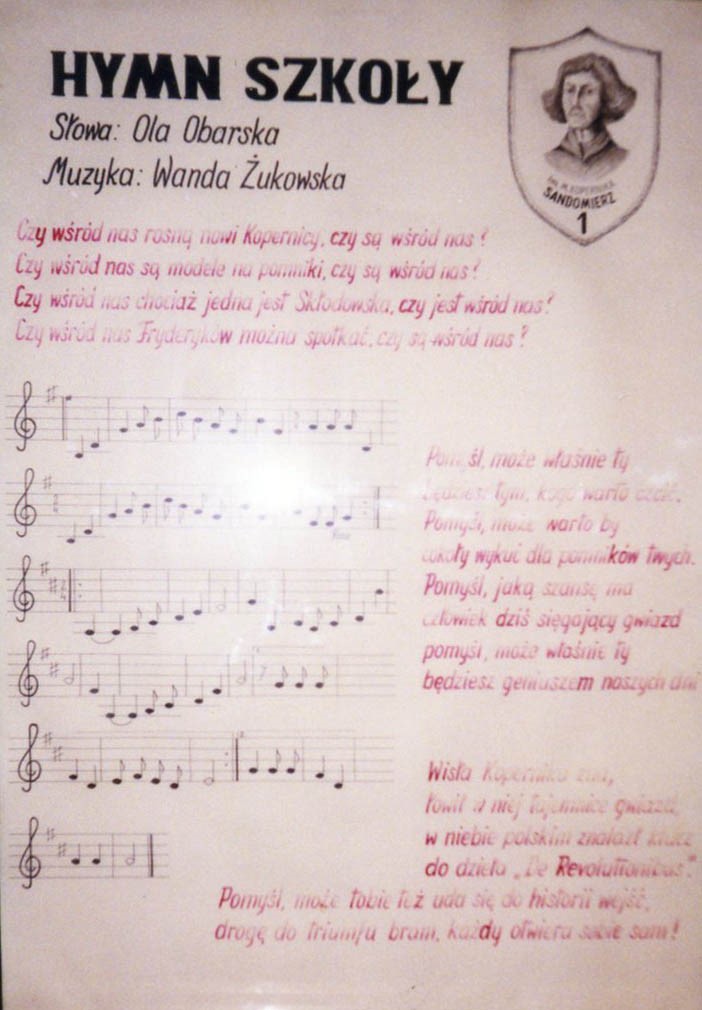 HYMN SZKOŁY
Słowa: Ola Obarska
Muzyka: Wanda Żukowska
im. M. KOPERNIKA
SANDOMIERZ
1
Czy wśród nas rosną nowi Kopernicy, czy są wśród nas?
Czy wśród nas są modele na pomniki, czy są wśród nas?
Czy wśród nas chociaż jedna jest Skłodowska, czy jest wśród nas?
Czy wśród nas Fryderyków można spotkać, czy są wśród nas?
Pomyśl, może właśnie ty
będziesz tym, kogo warto czcić.
Pomyśl, może warto by
cokoły wykuć dla pomników twych.
Pomyśl, jaką szansę ma
człowiek dziś sięgający gwiazd
pomyśl, może właśnie ty
będziesz geniuszem naszych dni
Wisła Kopernika zna,
łowił w niej tajemnice gwiazd,
w niebie polskim znalazł klucz
do dzieła „De Revolutionibus".
Pomyśl, może tobie też uda się do historii wejść,
drogę do triumfu bram, każdy otwiera sobie sam!